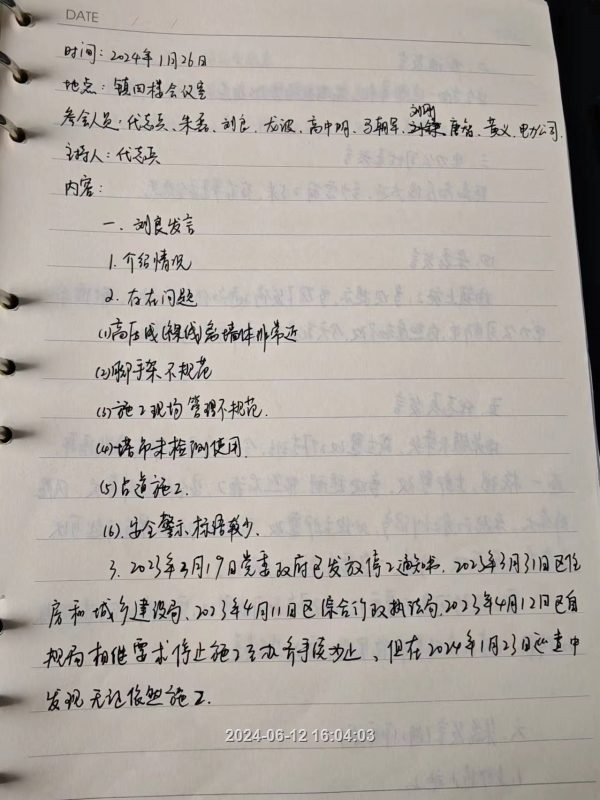 DATE
时间：2024年1月26日
地点：镇四楼会议室
刘刚
参会人员：代志兵、朱磊、刘良、龙波、高中明、马朝军、唐智、黄义、电力公司.
主持人：代志兵
内容：
一、刘良发言
1.介绍情况
2.存在问题
(1)高压线(裸线)离墙体非常近
(2)脚手架不规范
(3)施工现场管理不规范.
(4)塔吊未检测使用.
(5)占道施工.
(6)安全警示标语较少.
3.2023年3月19日党委政府已发放停工通知书.2023年3月31日区住
房和城乡建设局、2023年4月11日区综合行政执法局、2023年4月12日区自
规局相继要求停止施工至办齐手续为止、但在2024年1月23日巡查中
发现无证依然施工.
2024-06-12 16:04:03